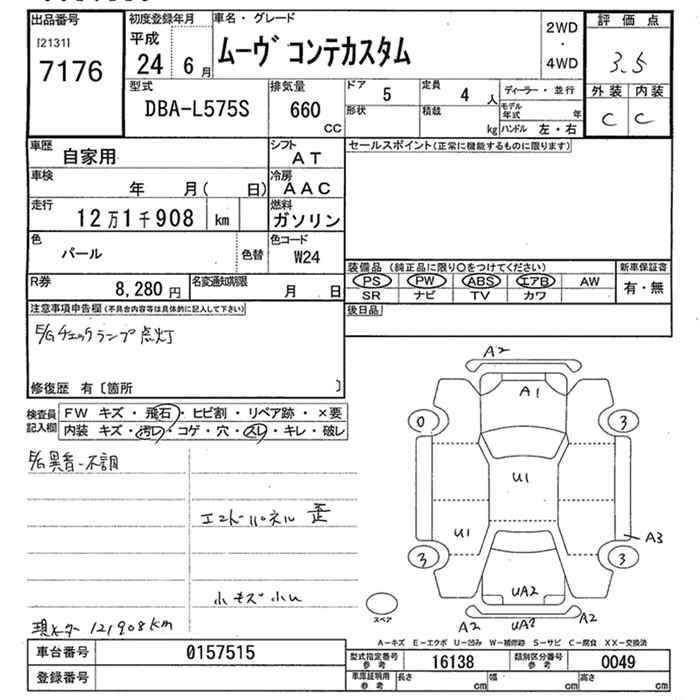 出品番号 初度登録年月 車名・グレード 評価点
[2131] 平成
7176 24 6月 ムーヴ コンテカスタム 2WD・4WD 3.5
外装 内装
C C
型式 DBA-L575S 排気量 660 CC ドア 5 定員 4 人 ディーラー・並行
形状 積載 kg モデル年式 年
ハンドル 左・右
車歴 自家用 シフト AT セールスポイント(正常に機能するものに限ります)
車検 年 月( 日) 冷房 AAC
走行 12万1千908 km 燃料 ガソリン
色 パール 色替 色コード W24
装備品 (純正品に限り○をつけてください) 新車保証書
PS PW ABS エアB AW 有・無
SR ナビ TV カワ
R券 8,280円 名変通知期限 月 日
後日品
注意事項申告欄(不具合内容等は具体的に記入して下さい)
E/Gチェックランプ点灯
修復歴 有〔箇所 〕
検査員記入欄 FW キズ・飛石・ヒビ割・リペア跡・×要
内装 キズ・汚レ・コゲ・穴・スレ・キレ・破レ
E/G異音-不調
エンドパネル 歪
小キズ 小凹
現メーター 121908km
A2
A1
0 3
U1
U1
A3
3 3
UA2
A2 UA2 A2
スペア
A-キズ E-エクボ U-凹み W-補修跡 S-サビ C-腐食 XX-交換済
車台番号 0157515 型式指定番号 参考 16138 類別区分番号 参考 0049
登録番号 車庫証明用 参考 長さ cm 幅 cm 高さ cm